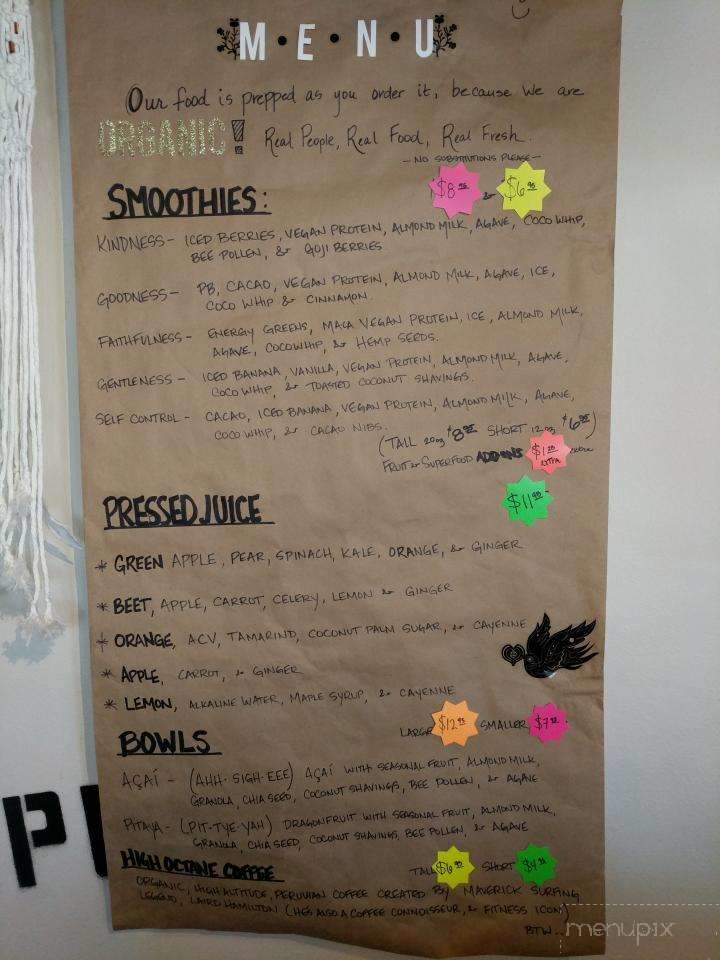 M·E·N·U
Our food is prepped as you order it, because we are
ORGANIC! Real People, Real Food, Real Fresh.
— NO SUBSTITUTIONS PLEASE —
SMOOTHIES: $8 & $6
KINDNESS – ICED BERRIES, VEGAN PROTEIN, ALMOND MILK, AGAVE, COCO WHIP,
BEE POLLEN, & GOJI BERRIES
GOODNESS – PB, CACAO, VEGAN PROTEIN, ALMOND MILK, AGAVE, ICE,
COCO WHIP & CINNAMON
FAITHFULNESS – ENERGY GREENS, MACA VEGAN PROTEIN, ICE, ALMOND MILK,
AGAVE, COCOWHIP, & HEMP SEEDS.
GENTLENESS – ICED BANANA, VANILLA, VEGAN PROTEIN, ALMOND MILK, AGAVE,
COCO WHIP, & TOASTED COCONUT SHAVINGS.
SELF CONTROL – CACAO, ICED BANANA, VEGAN PROTEIN, ALMOND MILK, AGAVE,
COCO WHIP, & CACAO NIBS.
(TALL 20oz $8 SHORT 12oz $6)
FRUIT or SUPERFOOD ADD ONS $1 EXTRA
PRESSED JUICE $11
* GREEN APPLE, PEAR, SPINACH, KALE, ORANGE, & GINGER
* BEET, APPLE, CARROT, CELERY, LEMON & GINGER
* ORANGE, ACV, TAMARIND, COCONUT PALM SUGAR, & CAYENNE
* APPLE, CARROT, & GINGER
* LEMON, ALKALINE WATER, MAPLE SYRUP, & CAYENNE
LARGE $12 SMALLER $7
BOWLS
AÇAÍ – (AHH·SIGH·EEE) AÇAÍ WITH SEASONAL FRUIT, ALMOND MILK,
GRANOLA, CHIA SEED, COCONUT SHAVINGS, BEE POLLEN, & AGAVE
PITAYA – (PIT-TYE-YAH) DRAGONFRUIT WITH SEASONAL FRUIT, ALMOND MILK,
GRANOLA, CHIA SEED, COCONUT SHAVINGS, BEE POLLEN, & AGAVE
HIGH OCTANE COFFEE TALL $6 SHORT $4
ORGANIC, HIGH ALTITUDE, PERUVIAN COFFEE CREATED BY MAVERICK SURFING
LEGEND, LAIRD HAMILTON (HES ALSO A COFFEE CONNOISSEUR, & FITNESS ICON)
BTW...
menupix